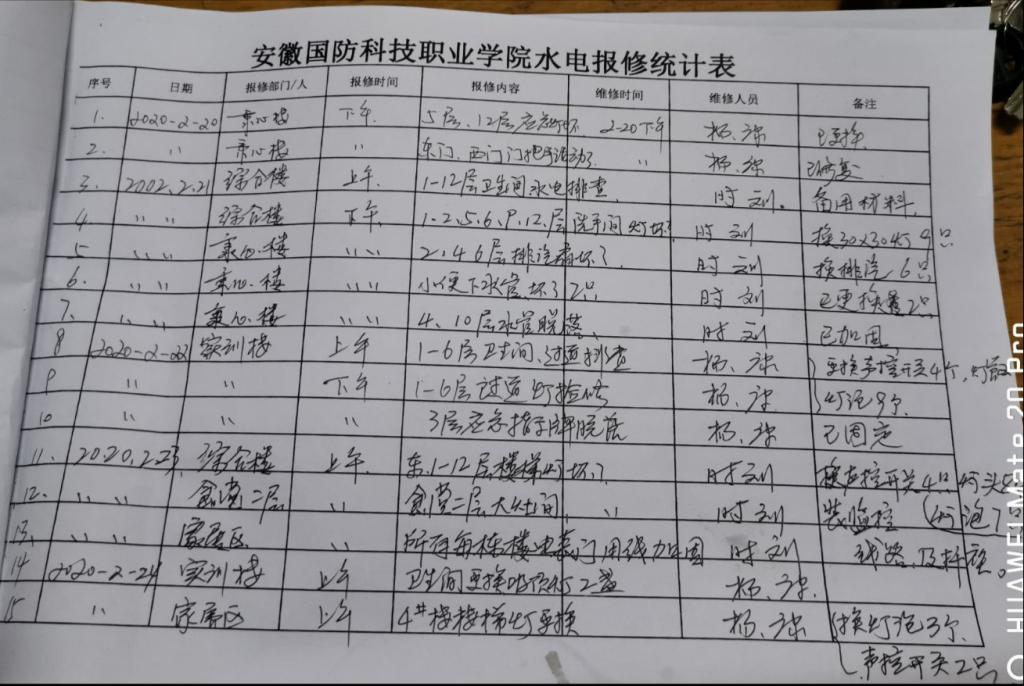 安徽国防科技职业学院水电报修统计表
序号 日期 报修部门/人 报修时间 报修内容 维修时间 维修人员 备注
1. 2020-2-20 秉心楼 下午 5层、12层应急灯坏 2-20下午 杨、 已更换
2. 〃 秉心楼 〃 东门、西门门把手活动了 〃 杨、 已修复
3. 2002.2.21 综合楼 上午 1-12层卫生间水电排查 时 刘。 备用材料
4. 〃 〃 综合楼 下午 1.2.5.6.9.12.层洗手间灯坏 时 刘 换30×30灯9只
5 〃 〃 秉心.楼 〃 〃 2.4 6层排汽扇坏了 时 刘 换排汽6只
6. 〃 〃 秉心.楼 〃 〃 小便下水管坏了2只 时 刘 已更换 2只
7. 〃 〃 秉心楼 〃 〃 4、10层水管脱落 时 刘 已加固
8 2020-2-22 实训楼 上午 1-6层卫生间、过道排查 杨、 更换声控开关4个,
9 〃 〃 下午 1-6层过道灯检修 杨、 灯泡9个
10 〃 〃 〃 3层应急指示牌脱落 杨、 已固定
11. 2020.2.23 综合楼 上午 东1-12层楼梯灯坏了 时 刘 换声控开关4只 灯头
12. 〃 〃 食堂二层 〃 食堂二层大灶间 〃 时 刘 装监控 灯泡7只
13. 〃 〃 家属区 〃 所有每栋楼 用线加固 时 刘 线路及 。
14 2020-2-24 实训楼 上午 卫生间更换吸顶灯2盏 杨、
15 〃 家属区 上午 4#楼楼梯灯更换 杨、 换灯泡3个
声控开关2只
HUAWEI Mate 20 Pro